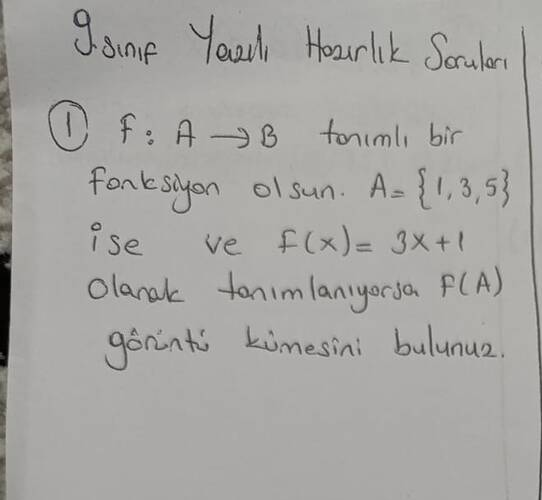 9.sınıf Yazılı Hazırlık Soruları
① f: A → B tanımlı bir
fonksiyon olsun. A = {1, 3, 5}
ise ve f(x) = 3x+1
olarak tanımlanıyorsa f(A)
görüntü kümesini bulunuz.